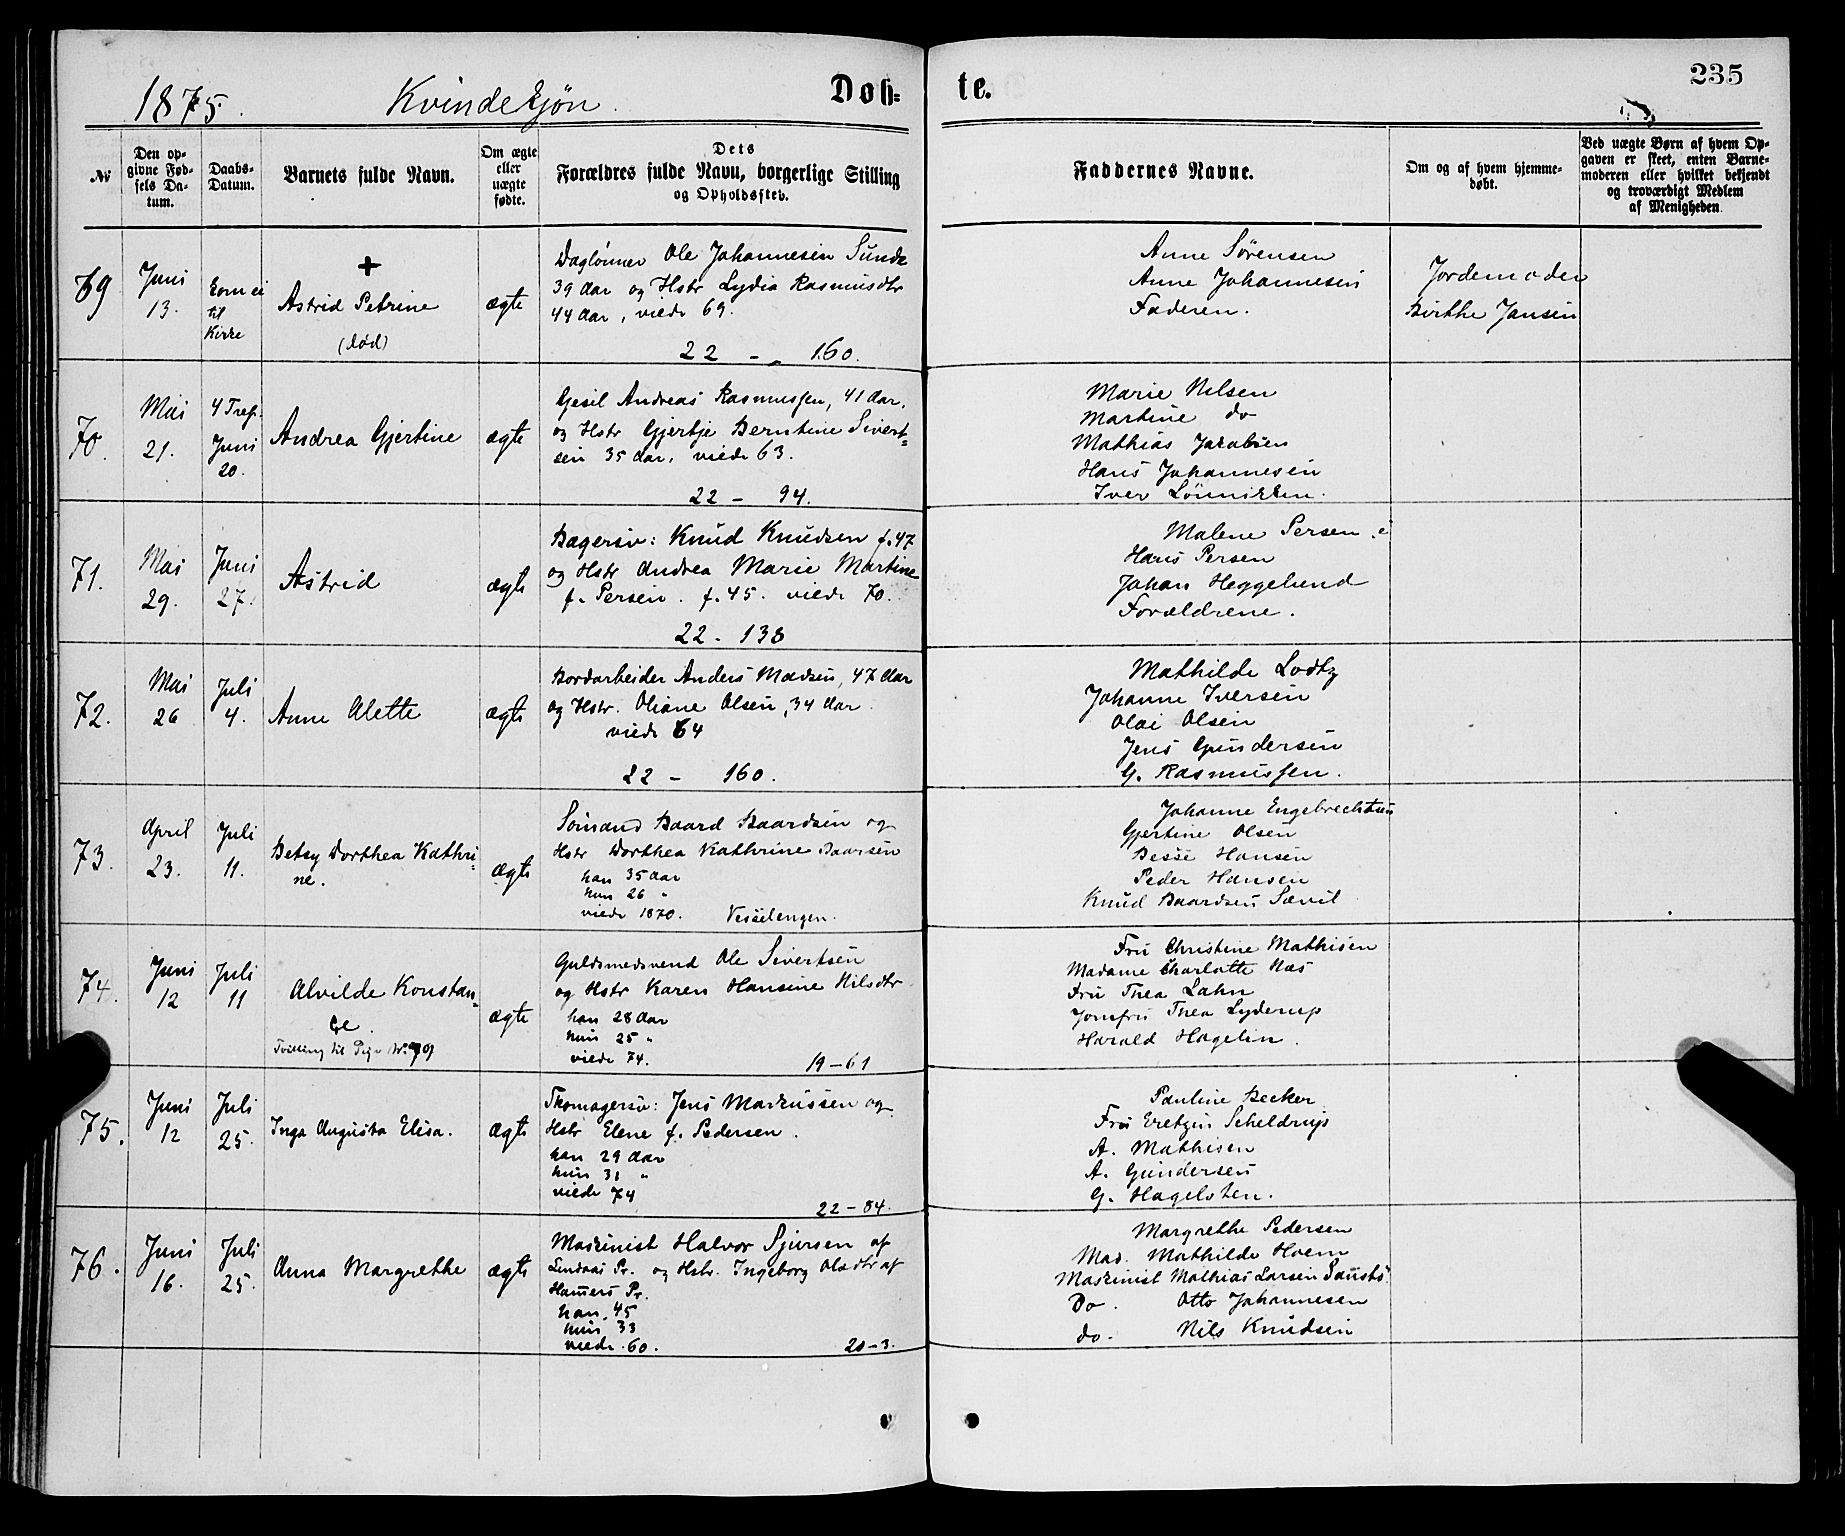 235
1875. Kvindekjøn. Døb- te.
No
Den op-
givne Fød-
sels Da-
tum.
Daabs-
Datum.
Barnets fulde Navn.
Om ægte
eller
uægte
fødte.
Dets
Forældres fulde Navn, borgerlige Stilling
og Opholdssted.
Faddernes Navne.
Om og af hvem hjemme-
døbt.
Ved uægte Børn af hvem Op-
gaven er skeet, enten Barne-
moderen eller hvilket bekjendt
og troværdigt Medlem
af Menigheden.
69
Juni
13.
kom ei
til
Kirke
+
Astrid Petrine
(død)
ægte
Daglønner Ole Johannesen Sunde
39 Aar og Hstr Lydia Rasmusdtr
44 Aar, viede 69.
22 - 160.
Anne Sørensen
Anne Johannesen
Faderen.
Jordemoder
Birthe Jansen
70.
Mai
21.
4 Tref.
Juni
20.
Andrea Gjertine
ægte
Andreas Rasmussen, 41 Aar.
og Hstr Gjertje Berntine Sivert-
sen 35 Aar. viede 63.
22 - 94.
Marie Nilsen
Martine do
Mathias Jakobsen
Hans Johannesen
Iver
71.
Mai
29.
Juni
27.
Astrid
ægte
Bagersv: Knud Knudsen f. 47
og Hstr Andrea Marie Martine
f. Persen. f. 45. viede 70.
22 - 138
Malene Persen
Hans Persen
Johan Heggelund
Forældrene.
72.
Mai
26
Juli
4.
Anne Alette
ægte
Bordarbeider Anders Madsen, 47 Aar
og Hstr. Oliane Olsen, 34 Aar.
viede 64
22 - 160.
Mathilde Lodtz
Johanne Iversen
Olai Olsen
Jens Gundersen
G. Rasmussen.
73.
April
23.
Juli
11.
Betsy Dorthea Kathri-
ne.
ægte
Sømand Baard Baardsen og
Hstr Dorthea Kathrine Baarsen
han 35 Aar
hun 26 "
viede 1870. Veiselengen.
Johanne Engebrechtsen
Gjertine Olsen
Besse Hansen
Peder Hansen
Knud Baardsen Sævil
74.
Juni
12
Juli
11
Alvilde Konstan-
ce.
Tvilling til Pige No
ægte
Guldsmedsvend Ole Sivertsen
og Hstr Karen Hansine Nilsdtr
han 28 Aar
hun 25 "
viede 74.
19-61
Fru Christine Mathisen
Madame Charlotte Næs
Fru Thea Lahn
Jomfru Thea Lyderup
Harald Hagelin.
75.
Juni
12
Juli
25.
Inga Augusta Elisa.
ægte
Skomagersv: Jens Markussen og
Hstr Elene f. Pedersen.
han 29 Aar
hun 31 "
viede 74
22-84.
Pauline Becker
Fru Scheldrup
A. Mathisen
A. Gundersen
G. Hagelsten.
76.
Juni
16.
Juli
25.
Anna Margrethe
ægte
Maskinist Halvor Sjursen af
Lindaas Pr. og Hstr. Ingeborg Olsdtr af
Hamers Pr.
han 45
hun 33
viede 60.
20-3.
Margrethe Pedersen
Mad. Mathilde Holm
Maskinist Mathias Larsen
Do. Otto Johannesen
do. Nils Knudsen